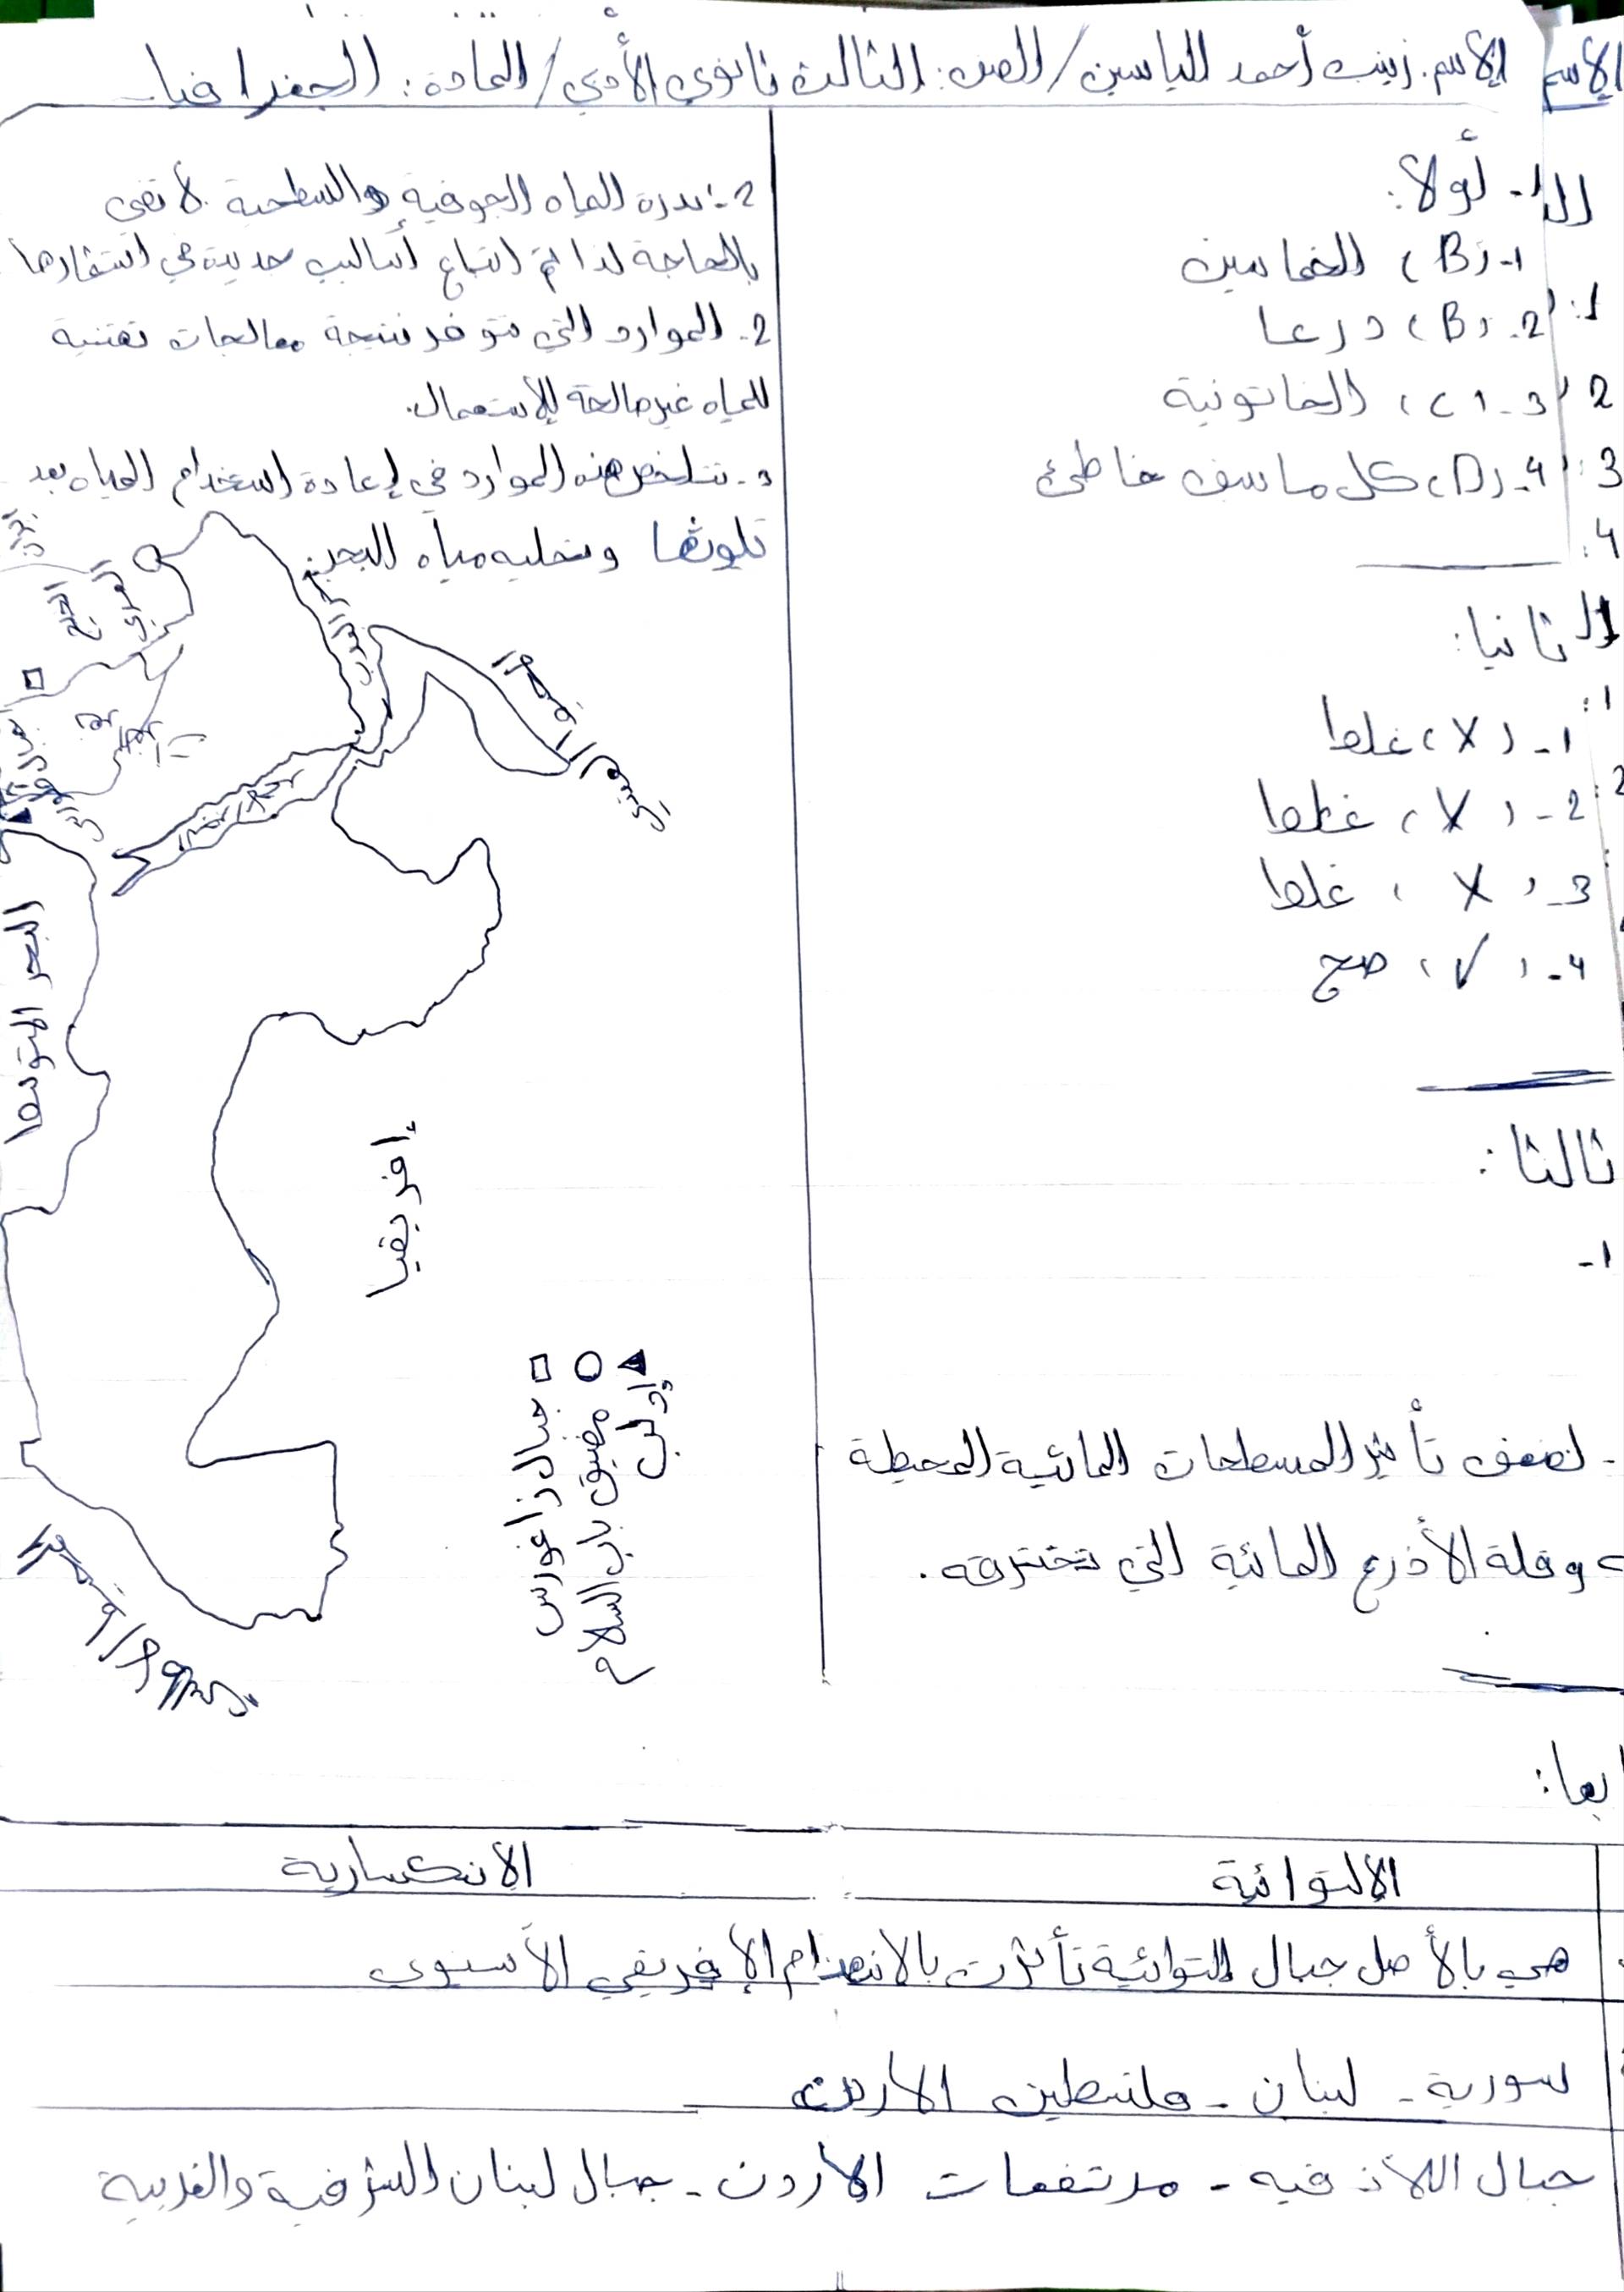 الاسم الاسم. زينب أحمد الياسين / الصف: الثالث ثانوي الأدبي / المادة: الجغرافيا
أولا:
1- (B) الخماسين
2- (B) درعا
3- (C) الخاتونية
4- (D) كل ما سبق خاطئ
1:
2
3:
4:
ثانيا:
1- (X) غلط
2- (X) غلط
3- (X) غلط
4- (✓) صح
ثالثا:
1-
- لضعف تأثير المسطحات المائية المحيطة
وقلة الأذرع المائية التي تخترقه.
2- ندرة المياه الجوفية والسطحية لا تفي
بالحاجة لذا تم اتباع أساليب حديثة في استثمارها
2- الموارد التي تتوفر نتيجة معالجات تقنية
للمياه غير صالحة للإستعمال.
د- تتلخص هذه الموارد في إعادة استخدام المياه بعد
تلوثها وتحلية مياه البحر.
البحر المتوسط
إفريقيا
□ جبال زاغورس
○ مضيق باب السلام
▲ إدلب
بعا:
الالتوائية
الانكسارية
هي بالأصل جبال التوائية تأثرت بالانهدام الإفريقي الآسيوي
سورية - لبنان - فلسطين الأردن
جبال اللاذقيه - مرتفعات الاردن - جبال لبنان الشرقية والغربية